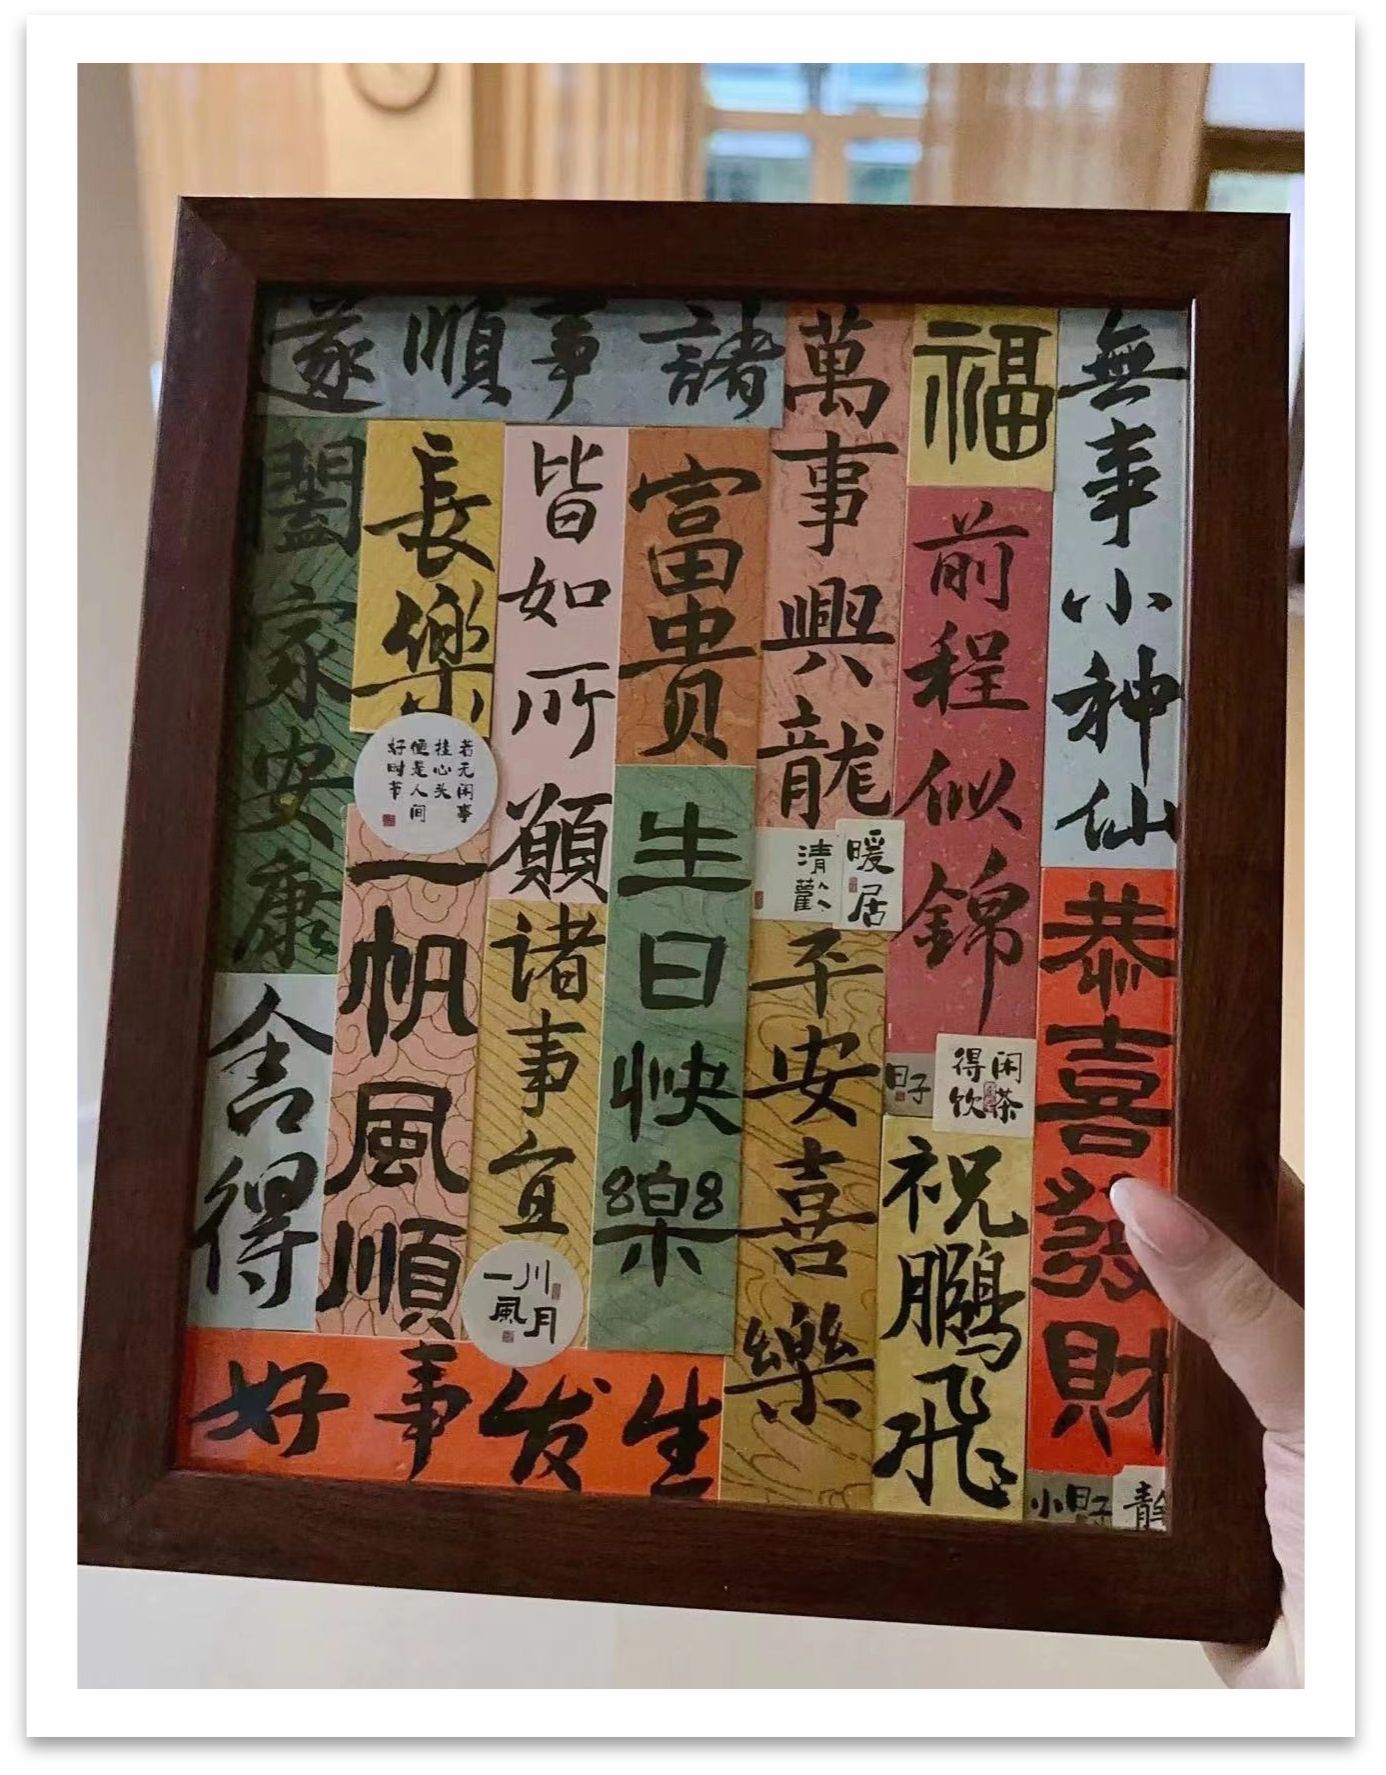 諸事順遂
無事小神仙
福
萬事興龍
前程似錦
富貴
皆如所願
長樂
闔家安康
若无闲事
挂心头
便是人间
好时节
暖居
清歡
恭喜發財
生日快樂
平安喜樂
诸事宜
一帆風順
舍得
闲茶
得饮
日子
祝鵬飛
川月
一風
好事发生
小日子